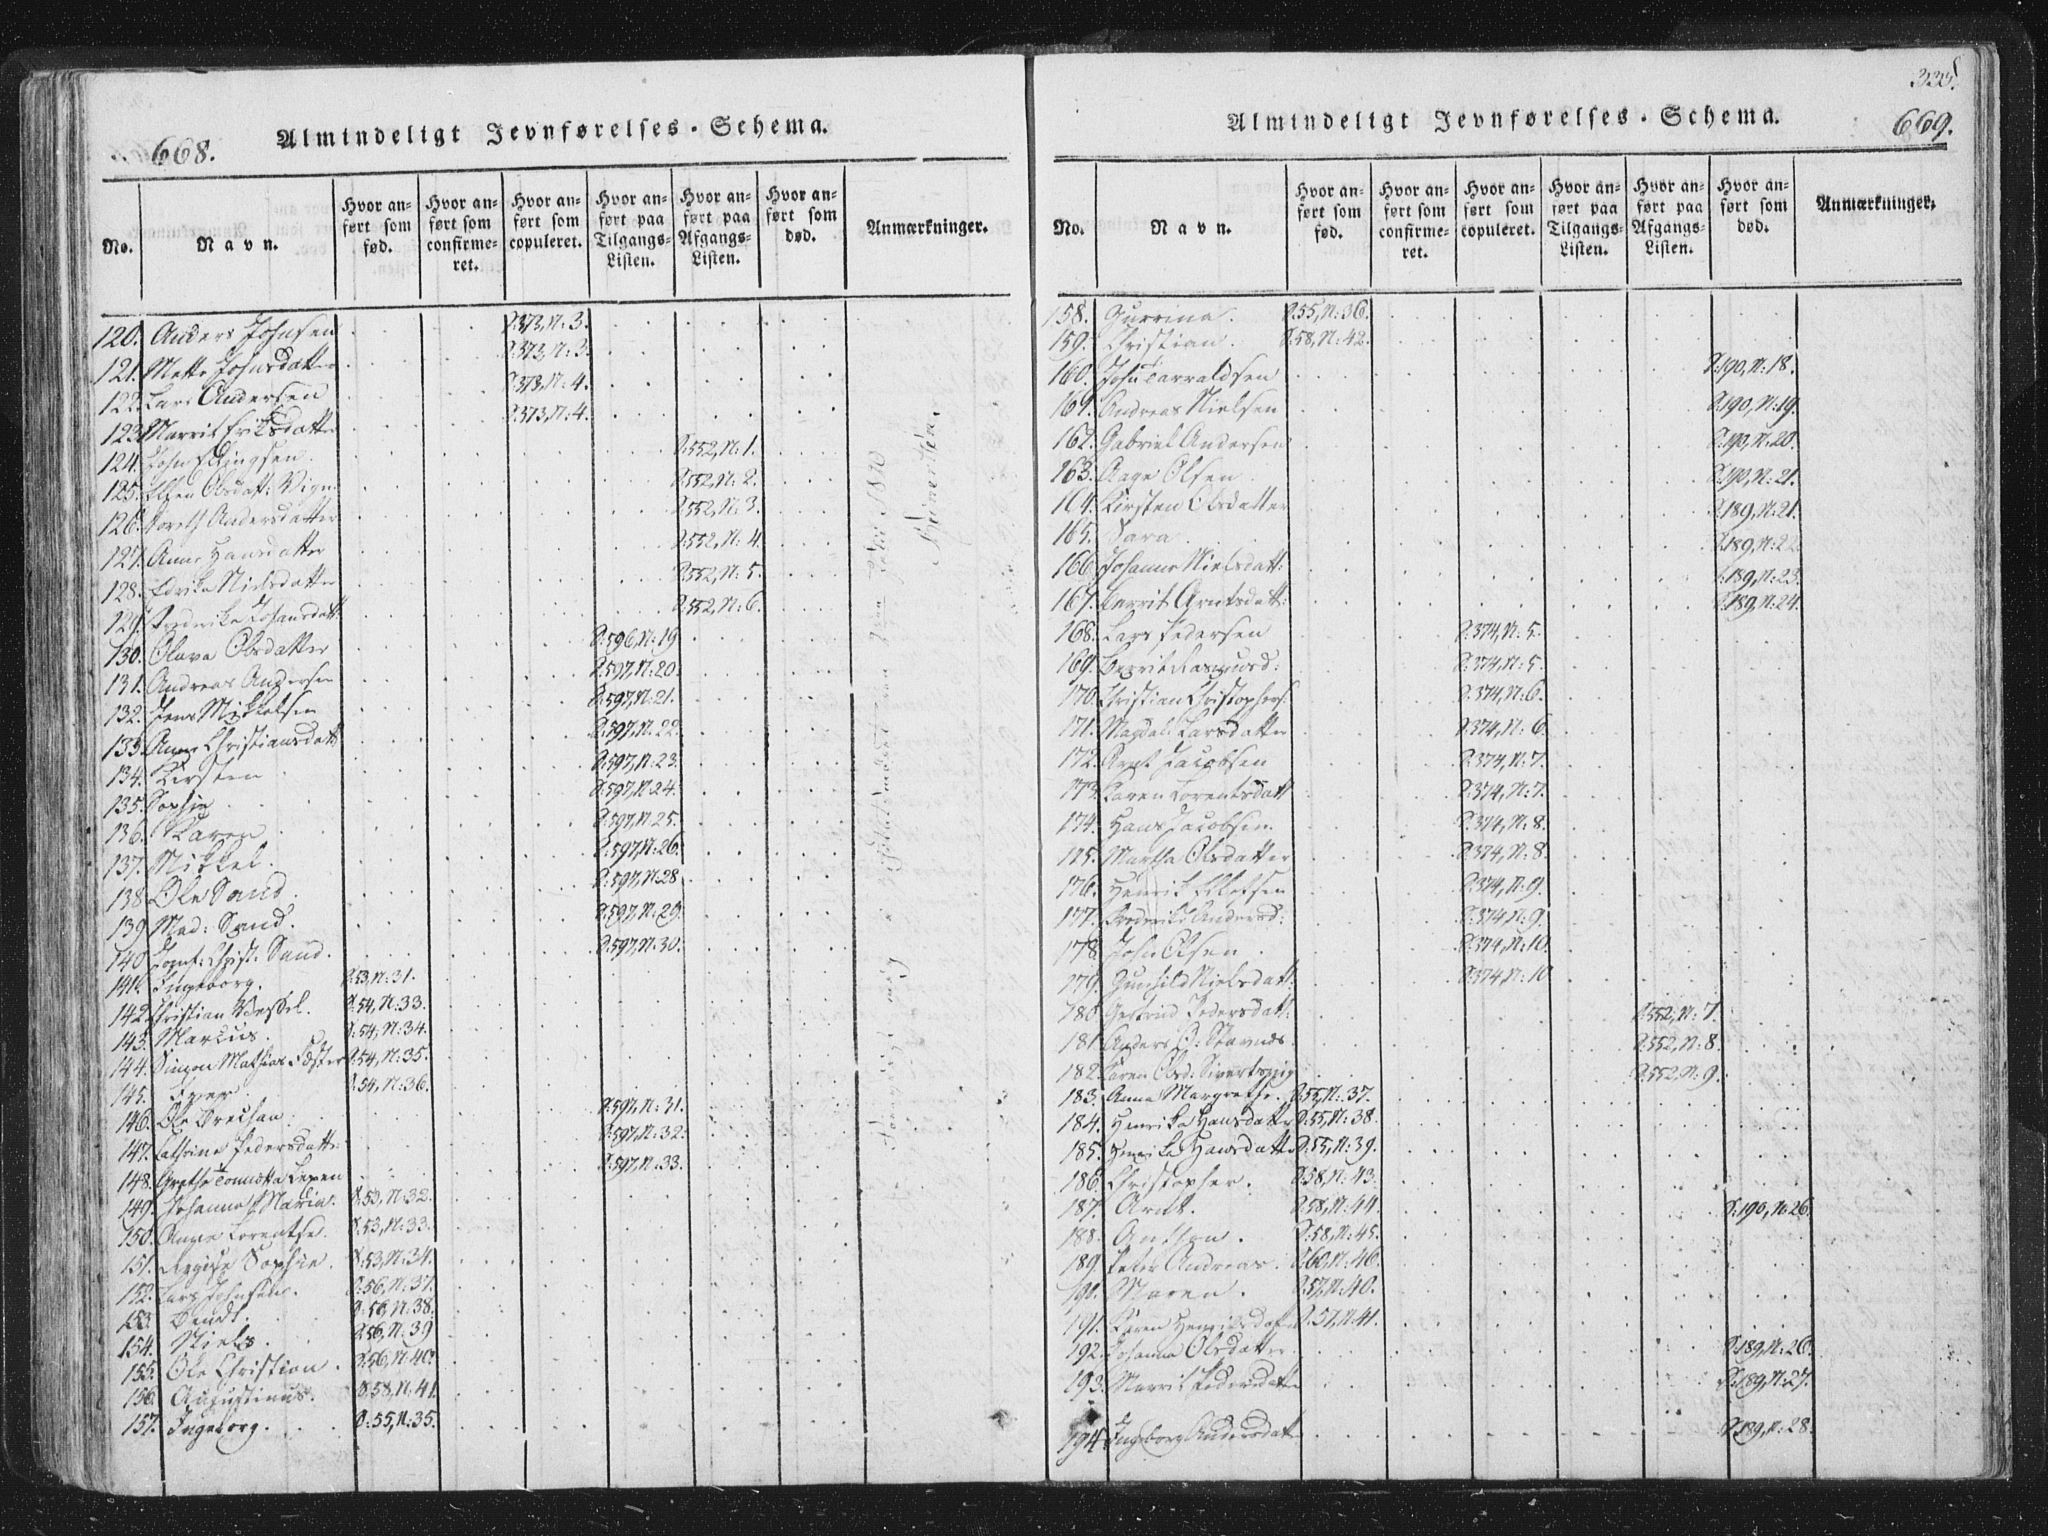 668. Almindeligt Jevnførelses-Schema.
No. Navn. Hvor anført som fød. Hvor anført som confirmeret. Hvor anført som copuleret. Hvor anført paa Tilgangs-Listen. Hvor anført paa Afgangs-Listen. Hvor anført som død. Anmærkninger.
120. Anders Johnsen P:373, N:3.
121. Mette Johnsdatter P:373, N:3.
122. Lars Andersen P:373, N:4.
123. Marrit Eriksdatter P:373, N:4.
124. John Ellingsen P:552, N:1.
125. Ellen Olsdatt: P:552, N:2.
126. Doreth Andersdatter P:552, N:3.
127. Anne Hansdatter P:552, N:4.
128. Nielsdatter P:552, N:5.
129. Fredrika Johansdatt: P:552, N:6.
130. Olava Olsdatter P:596, N:19
131. Andreas Andersen P:597, N:20.
132. Jens Mikkelsen P:597, N:21.
133. Anne Christiansdatt P:597, N:22.
134. Kirsten P:597, N:23.
135. Sophie P:597, N:24.
136. Maren P:597, N:25.
137. Mikkel. P:597, N:26.
138. Ole Sand. P:597, N:28
139. Mad: Sand. P:597, N:29.
140. Jomf: Christ: Sand. P:597, N:30.
141. Ingeborg. P:53, N:31.
142. Christian Wessel. P:54, N:33.
143. Marcus. P:54, N:34.
144. Simon Mathias P:54, N:35.
145. Iver P:54, N:36.
146. Ole P:597, N:31.
147. Cathrine Pedersdatter P:597, N:32.
148. Grethe P:597, N:33.
149. Johanna Maria. P:53, N:32.
150. Anne Lorentse. P:53, N:33.
151. Sophie. P:53, N:34.
152. Lars Johnsen. P:56, N:37.
153. Bendt. P:56, N:38.
154. Niels P:56, N:39
155. Ole Christian. P:56, N:40.
156. Augustinus. P:58, N:41.
157. Ingeborg. P:55, N:35.
335.
Almindeligt Jevnførelses-Schema. 669.
No. Navn. Hvor anført som fød. Hvor anført som confirmeret. Hvor anført som copuleret. Hvor anført paa Tilgangs-Listen. Hvor anført paa Afgangs-Listen. Hvor anført som død. Anmærkninger.
158. Gurrina. P:55, N:36.
159. Christian. P:58, N:42.
160. John Tarraldsen P:190, N:18.
161. Andreas Nielsen P:190, N:19.
162. Gabriel Andersen P:190, N:20.
163. Aage Olsen P:190, N:21.
164. Kirsten Olsdatter P:189, N:21.
165. Sara P:189, N:22.
166. Johanne Nielsdatt: P:189, N:23.
167. Berrit Arntsdatt: P:189, N:24.
168. Lars Pedersen P:374, N:5.
169. Berrit Rasmusd: P:374, N:5.
170. Christian Christophers: P:374, N:6.
171. Magdal: Larsdatter P:374, N:6.
172. Arnt Jacobsen P:374, N:7.
173. Karen Lorentsdatt P:374, N:7.
174. Hans Jacobsen P:374, N:8.
175. Martha Olsdatter P:374, N:8.
176. Henrik P:374, N:9.
177. Fredrika Andersd: P:374, N:9.
178. John Olsen P:374, N:10.
179. Gunhild Nielsdatt: P:374, N:10
180. Pedersdatt: P:552, N:7.
181. Anders P:552, N:8.
182. Karen Olsd: P:552, N:9.
183. Anna Margrethe. P:55, N:37.
184. Henrika Hansdatter P:55, N:38.
185. Hansdatter P:55, N:39.
186. Christopher. P:58, N:43.
187. Arnt. P:58, N:44. P:190, N:26.
188. Anthon. P:58, N:45.
189. Peter Andreas. P:60, N:46.
190. Maren. P:57, N:40.
191. Karen P:57, N:41.
192. Johanna Olsdatter P:189, N:26.
193. Marrit Pedersdatter P:189, N:27.
194. Ingeborg Andersdatt P:189, N:28.